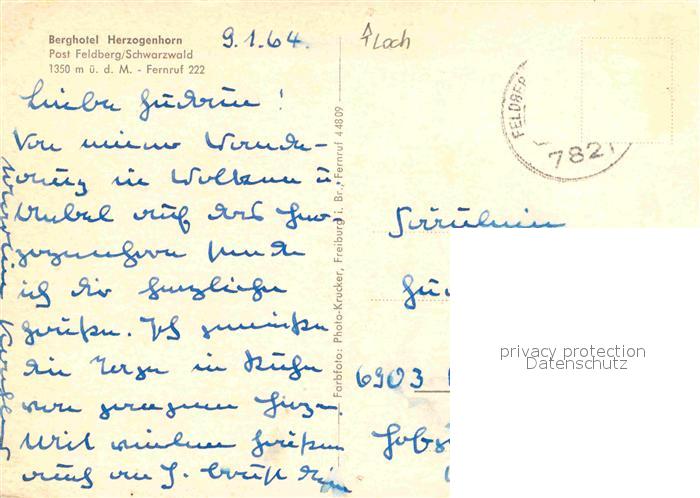 Berghotel Herzogenhorn
Post Feldberg/Schwarzwald
1350 m ü. d. M. - Fernruf 222
9.1.64.
Loch
FELDBER
7821
Liebe Gudrun!
Von meiner Wande-
rung in Wolken u.
Nebel auf das Her-
zogenhorn sende
ich dir herzliche
Grüße. Ich genieße
die Tage in Ruhe
von ganzem Herzen.
Mit vielen Grüßen
auch an
Farbfoto: Photo-Krucker, Freiburg i. Br., Fernruf 44809
Fräulein
Gu
6903
privacy protection
Datenschutz